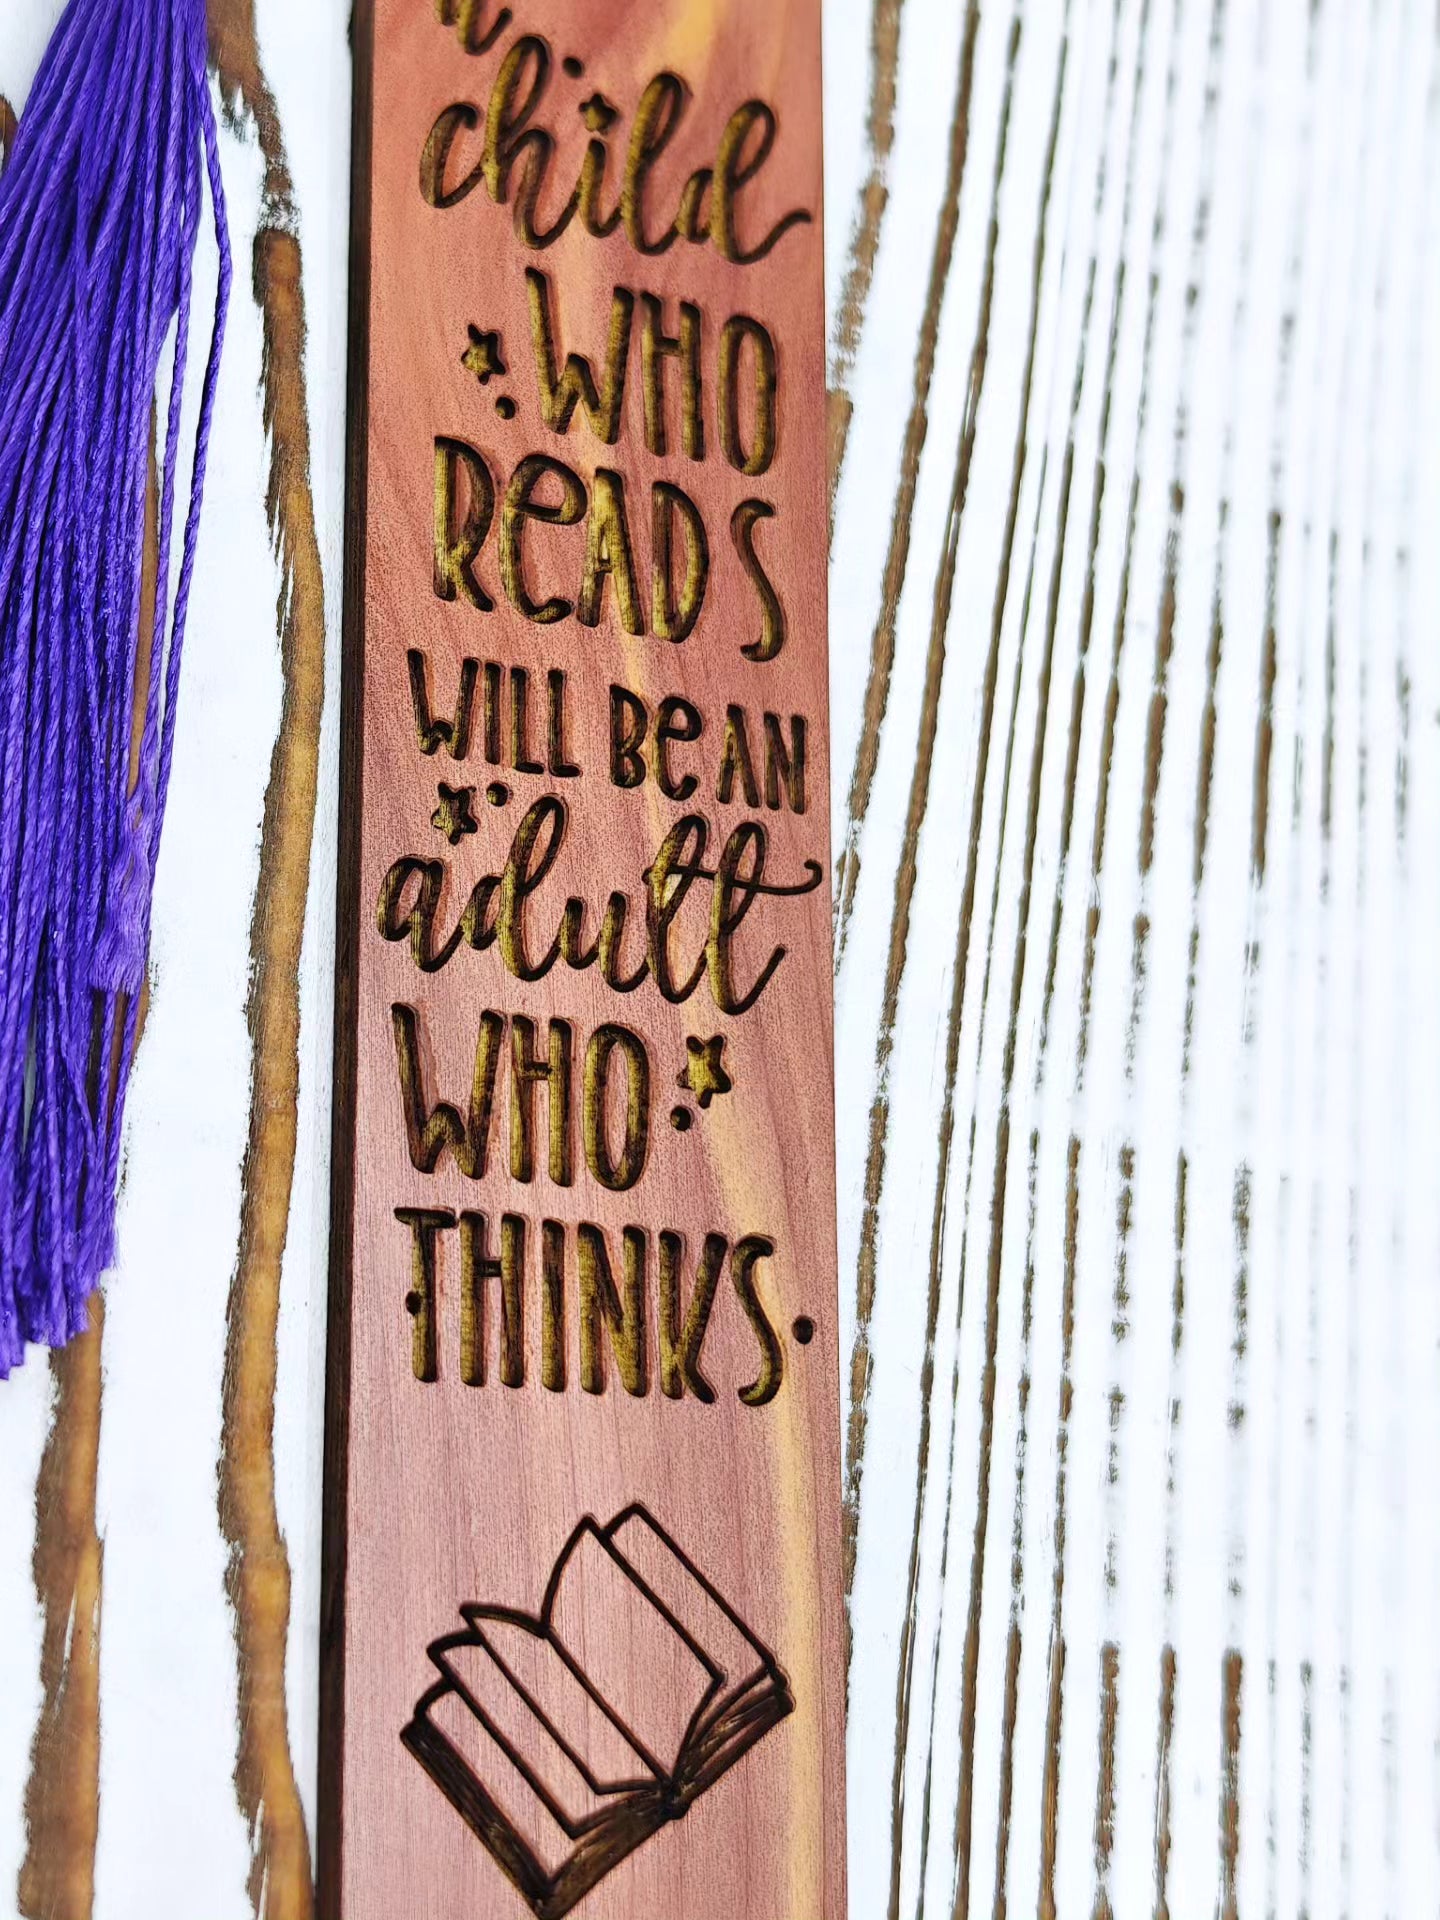 a
child
WHO
ReADS
WILL Be AN
adult
WHO
THINKS